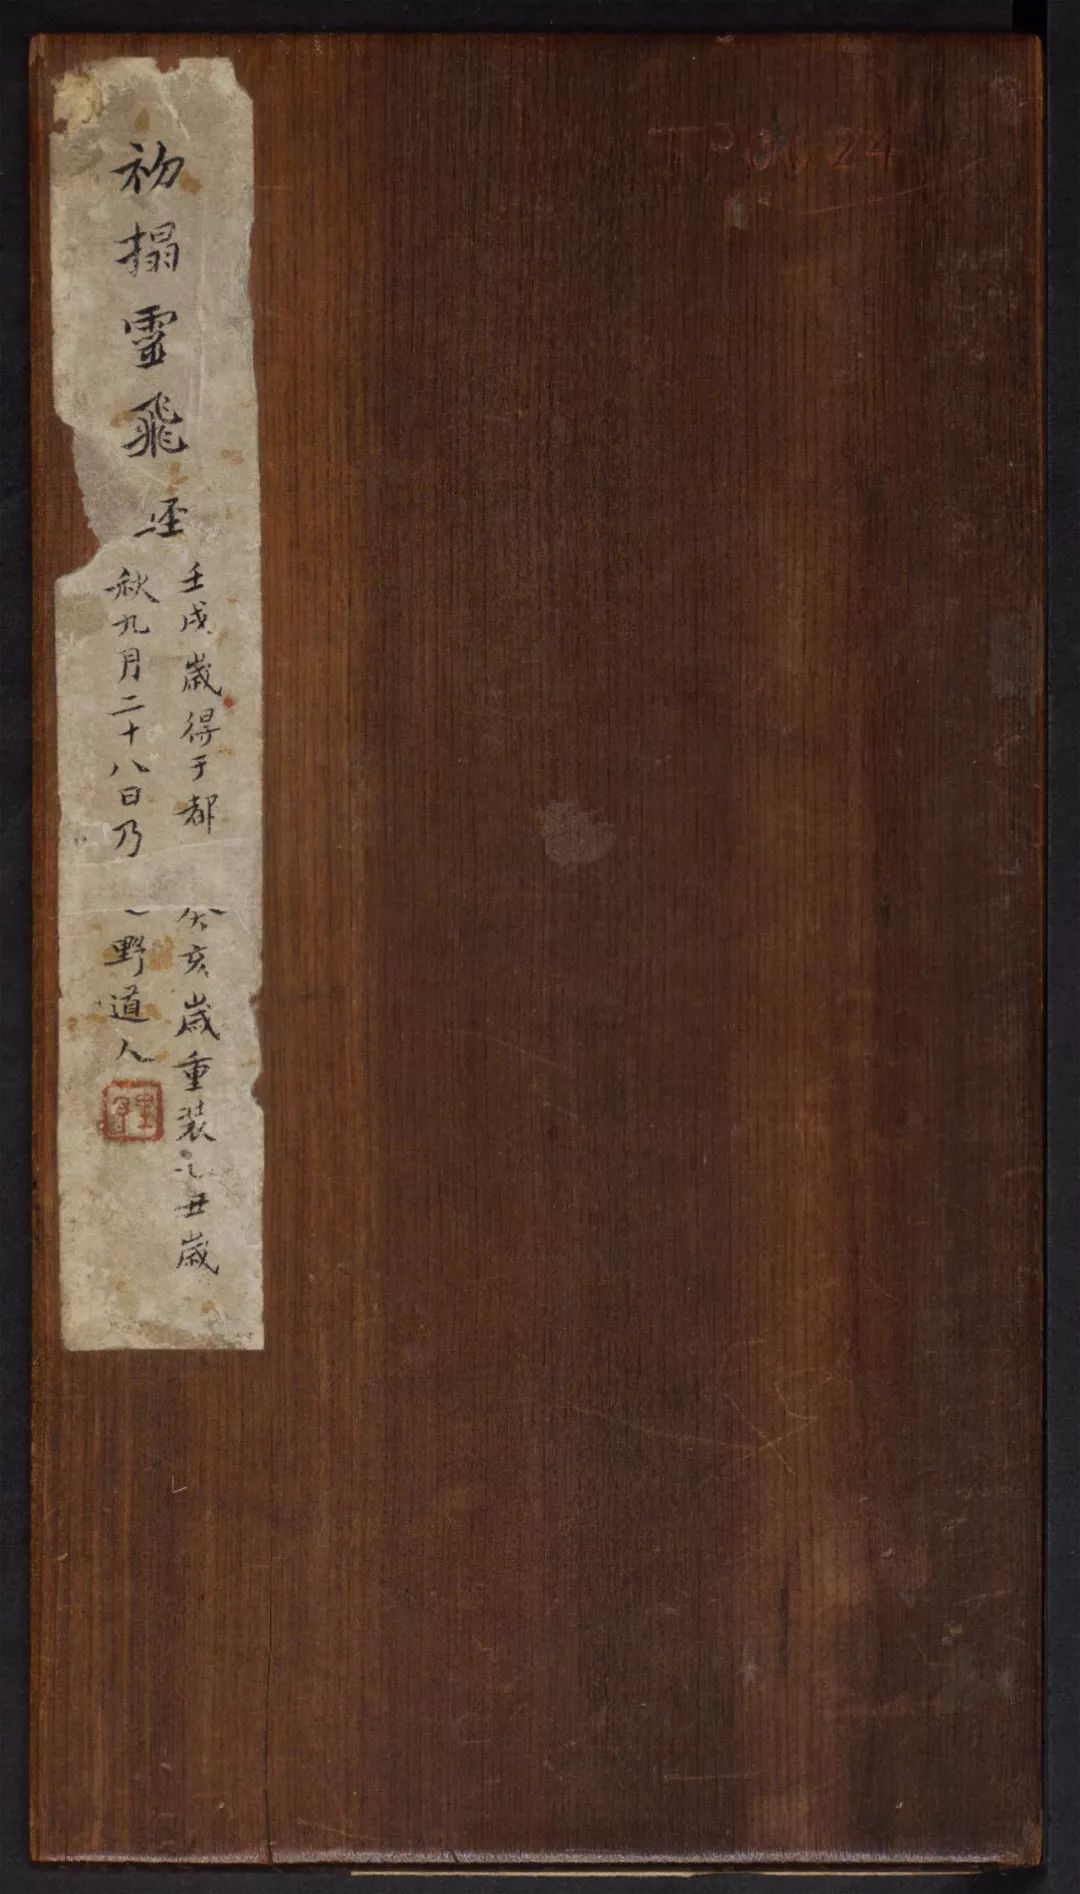 TP0024
初搨靈飛
壬戌歲得于都
癸亥歲重装乙丑歲
秋九月二十八日乃
野道人